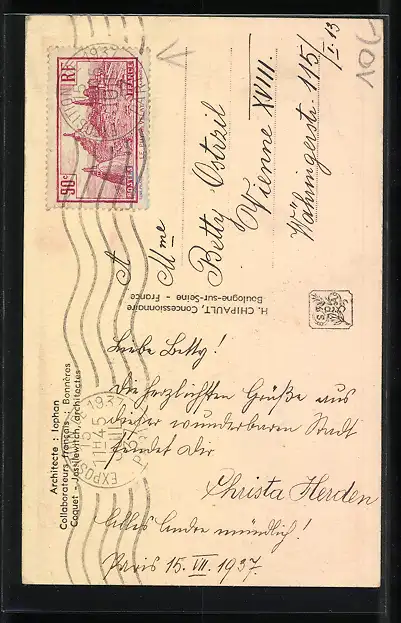 Architecte : Iophan
Collaborateurs français : Bonnères
Coquet - Jassiewitch, architectes
H. CHIPAULT, Concessionnaire
Boulogne-sur-Seine - France
90c RF
POSTES
FRANCE
EXPOSITION
1937
PARIS
EXPOSITION
1937
PARIS
A
Mme
Betty Ostrzil
Wienne XVIII.
Währingerstr. 115/
I. 13
106
Liebe Betty!
Die herzlichsten Grüße aus
dieser wunderbaren Stadt
sendet Dir
Christa Herden
Alles andre mündlich!
Paris 15. VII. 1937.